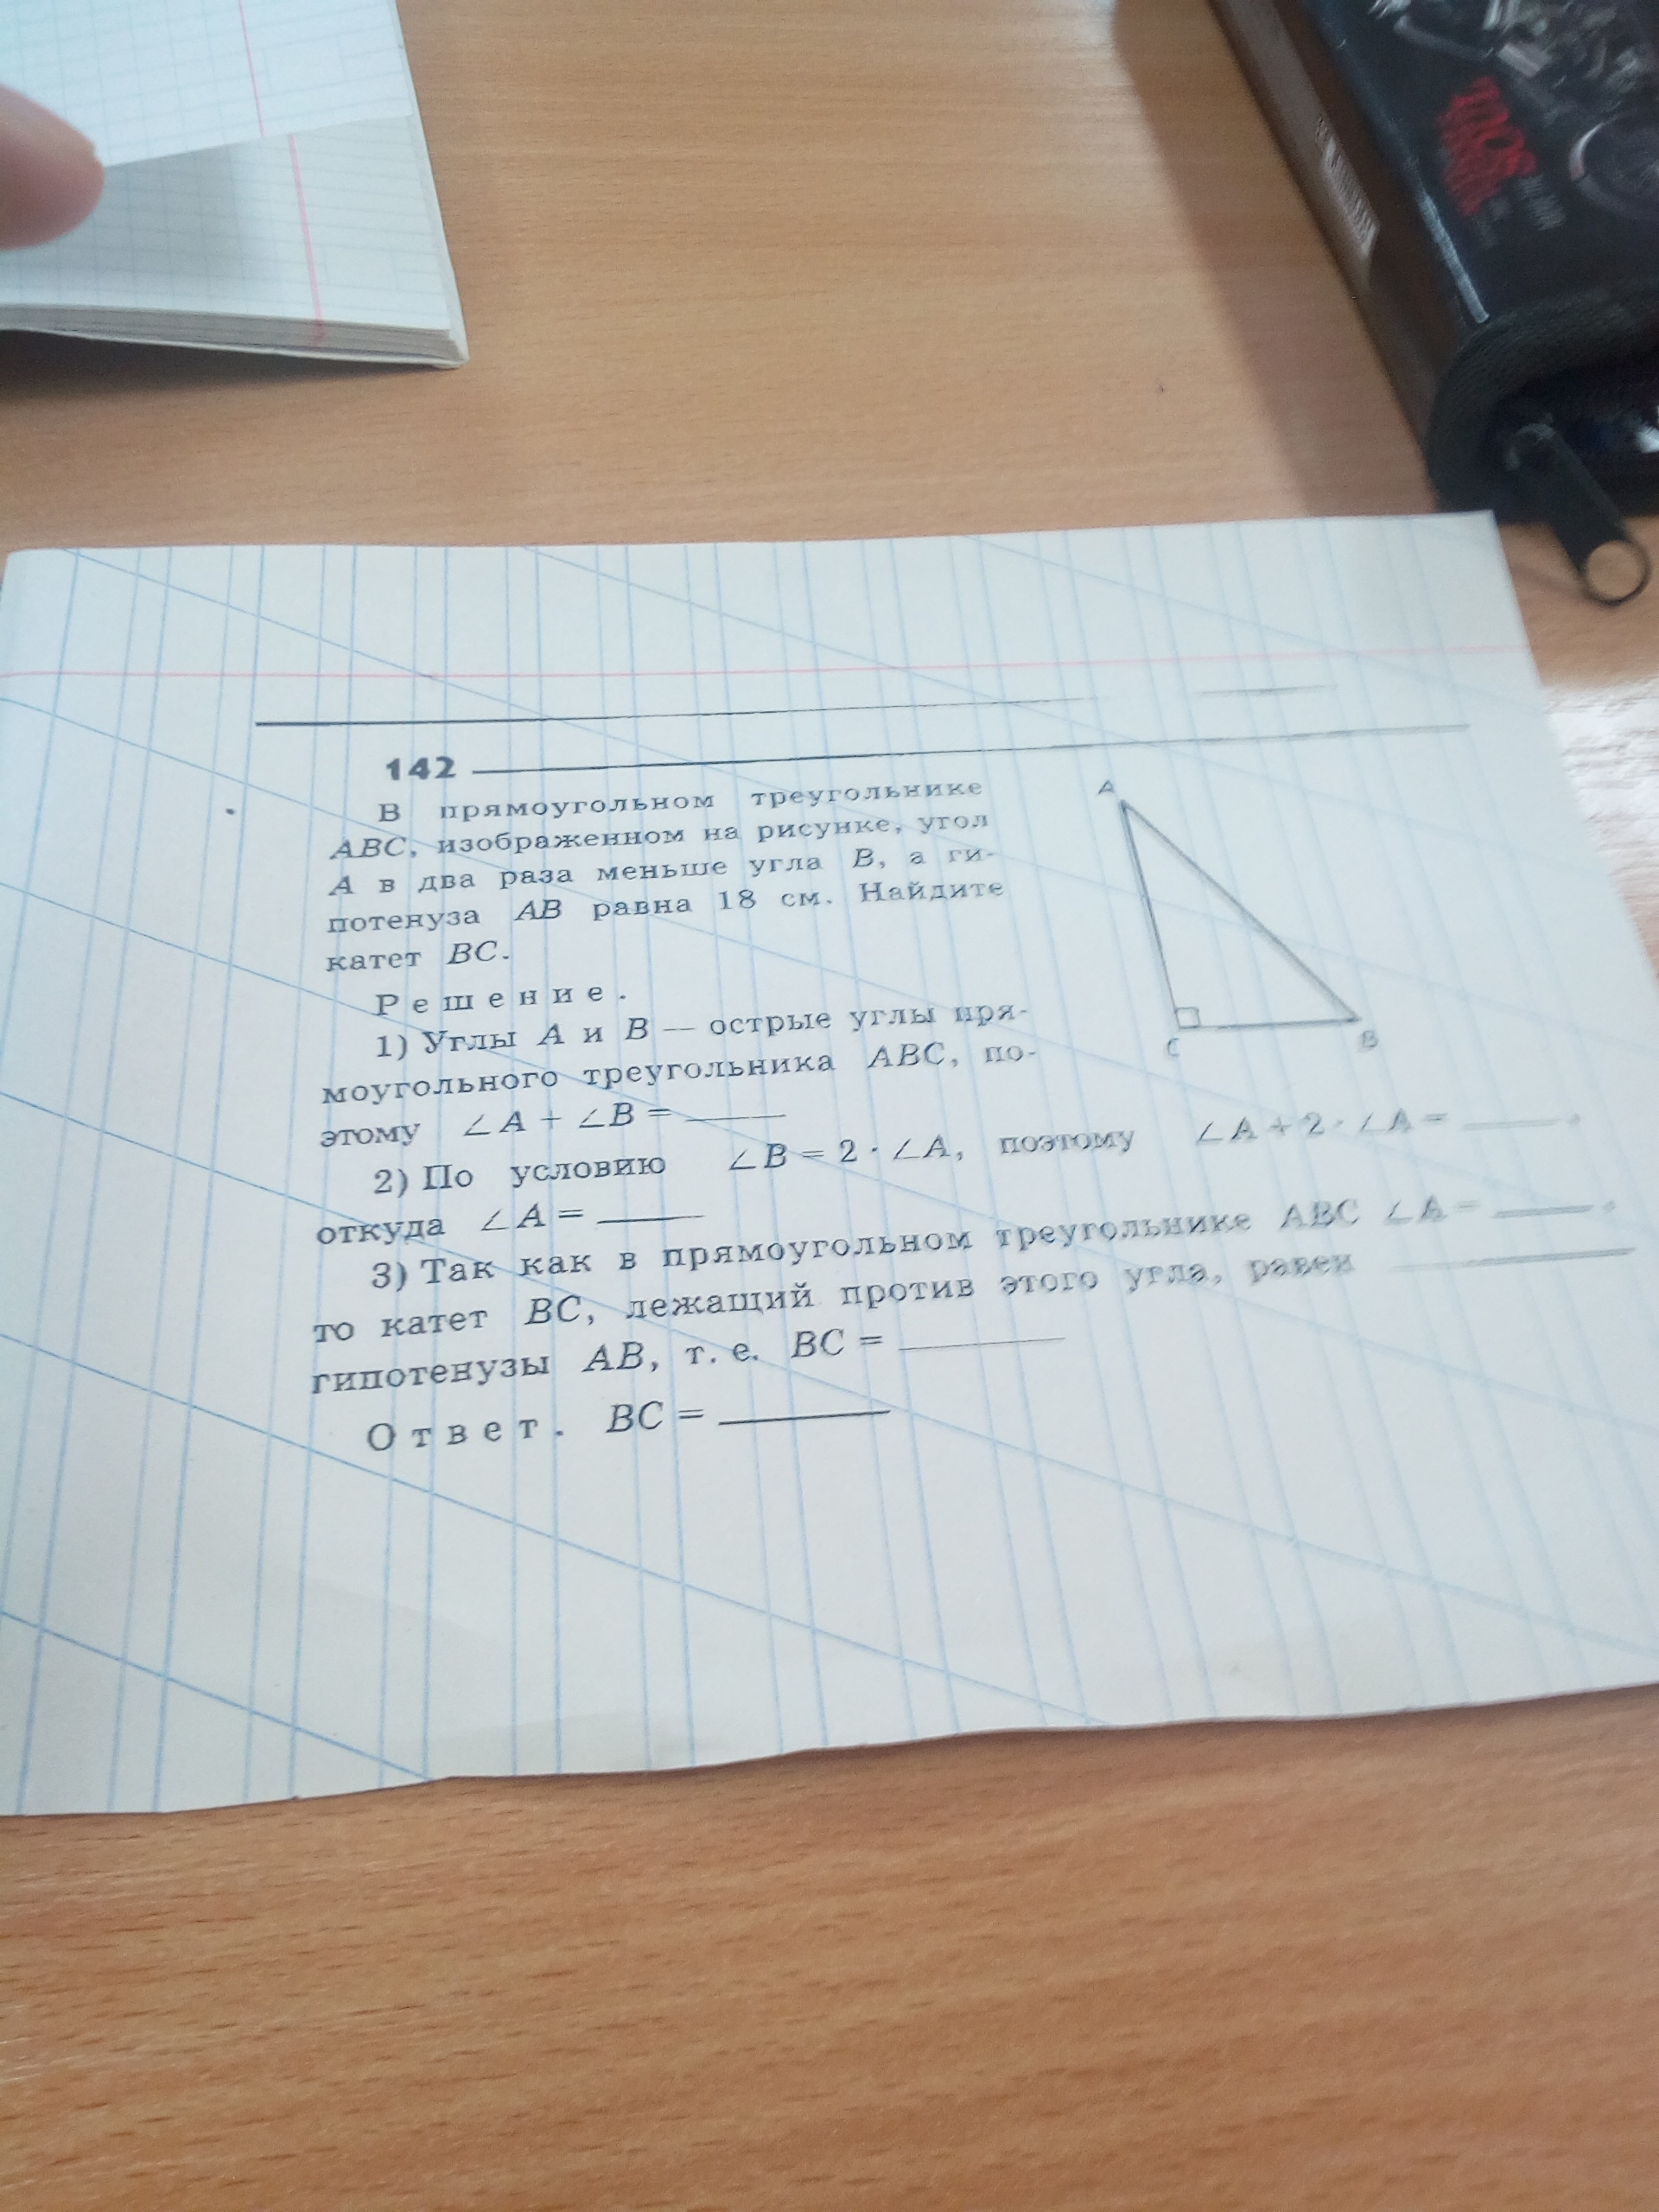 142
В прямоугольном треугольнике
ABC, изображенном на рисунке, угол
A в два раза меньше угла B, а ги-
потенуза AB равна 18 см. Найдите
катет BC.
Решение.
1) Углы A и B — острые углы пря-
моугольного треугольника ABC, по-
этому ∠A + ∠B = ____
2) По условию ∠B = 2 · ∠A, поэтому ∠A + 2 · ∠A = ____,
откуда ∠A = ____
3) Так как в прямоугольном треугольнике ABC ∠A = ____,
то катет BC, лежащий против этого угла, равен ____
гипотенузы AB, т. е. BC = ____
Ответ. BC = ____
A
C
B